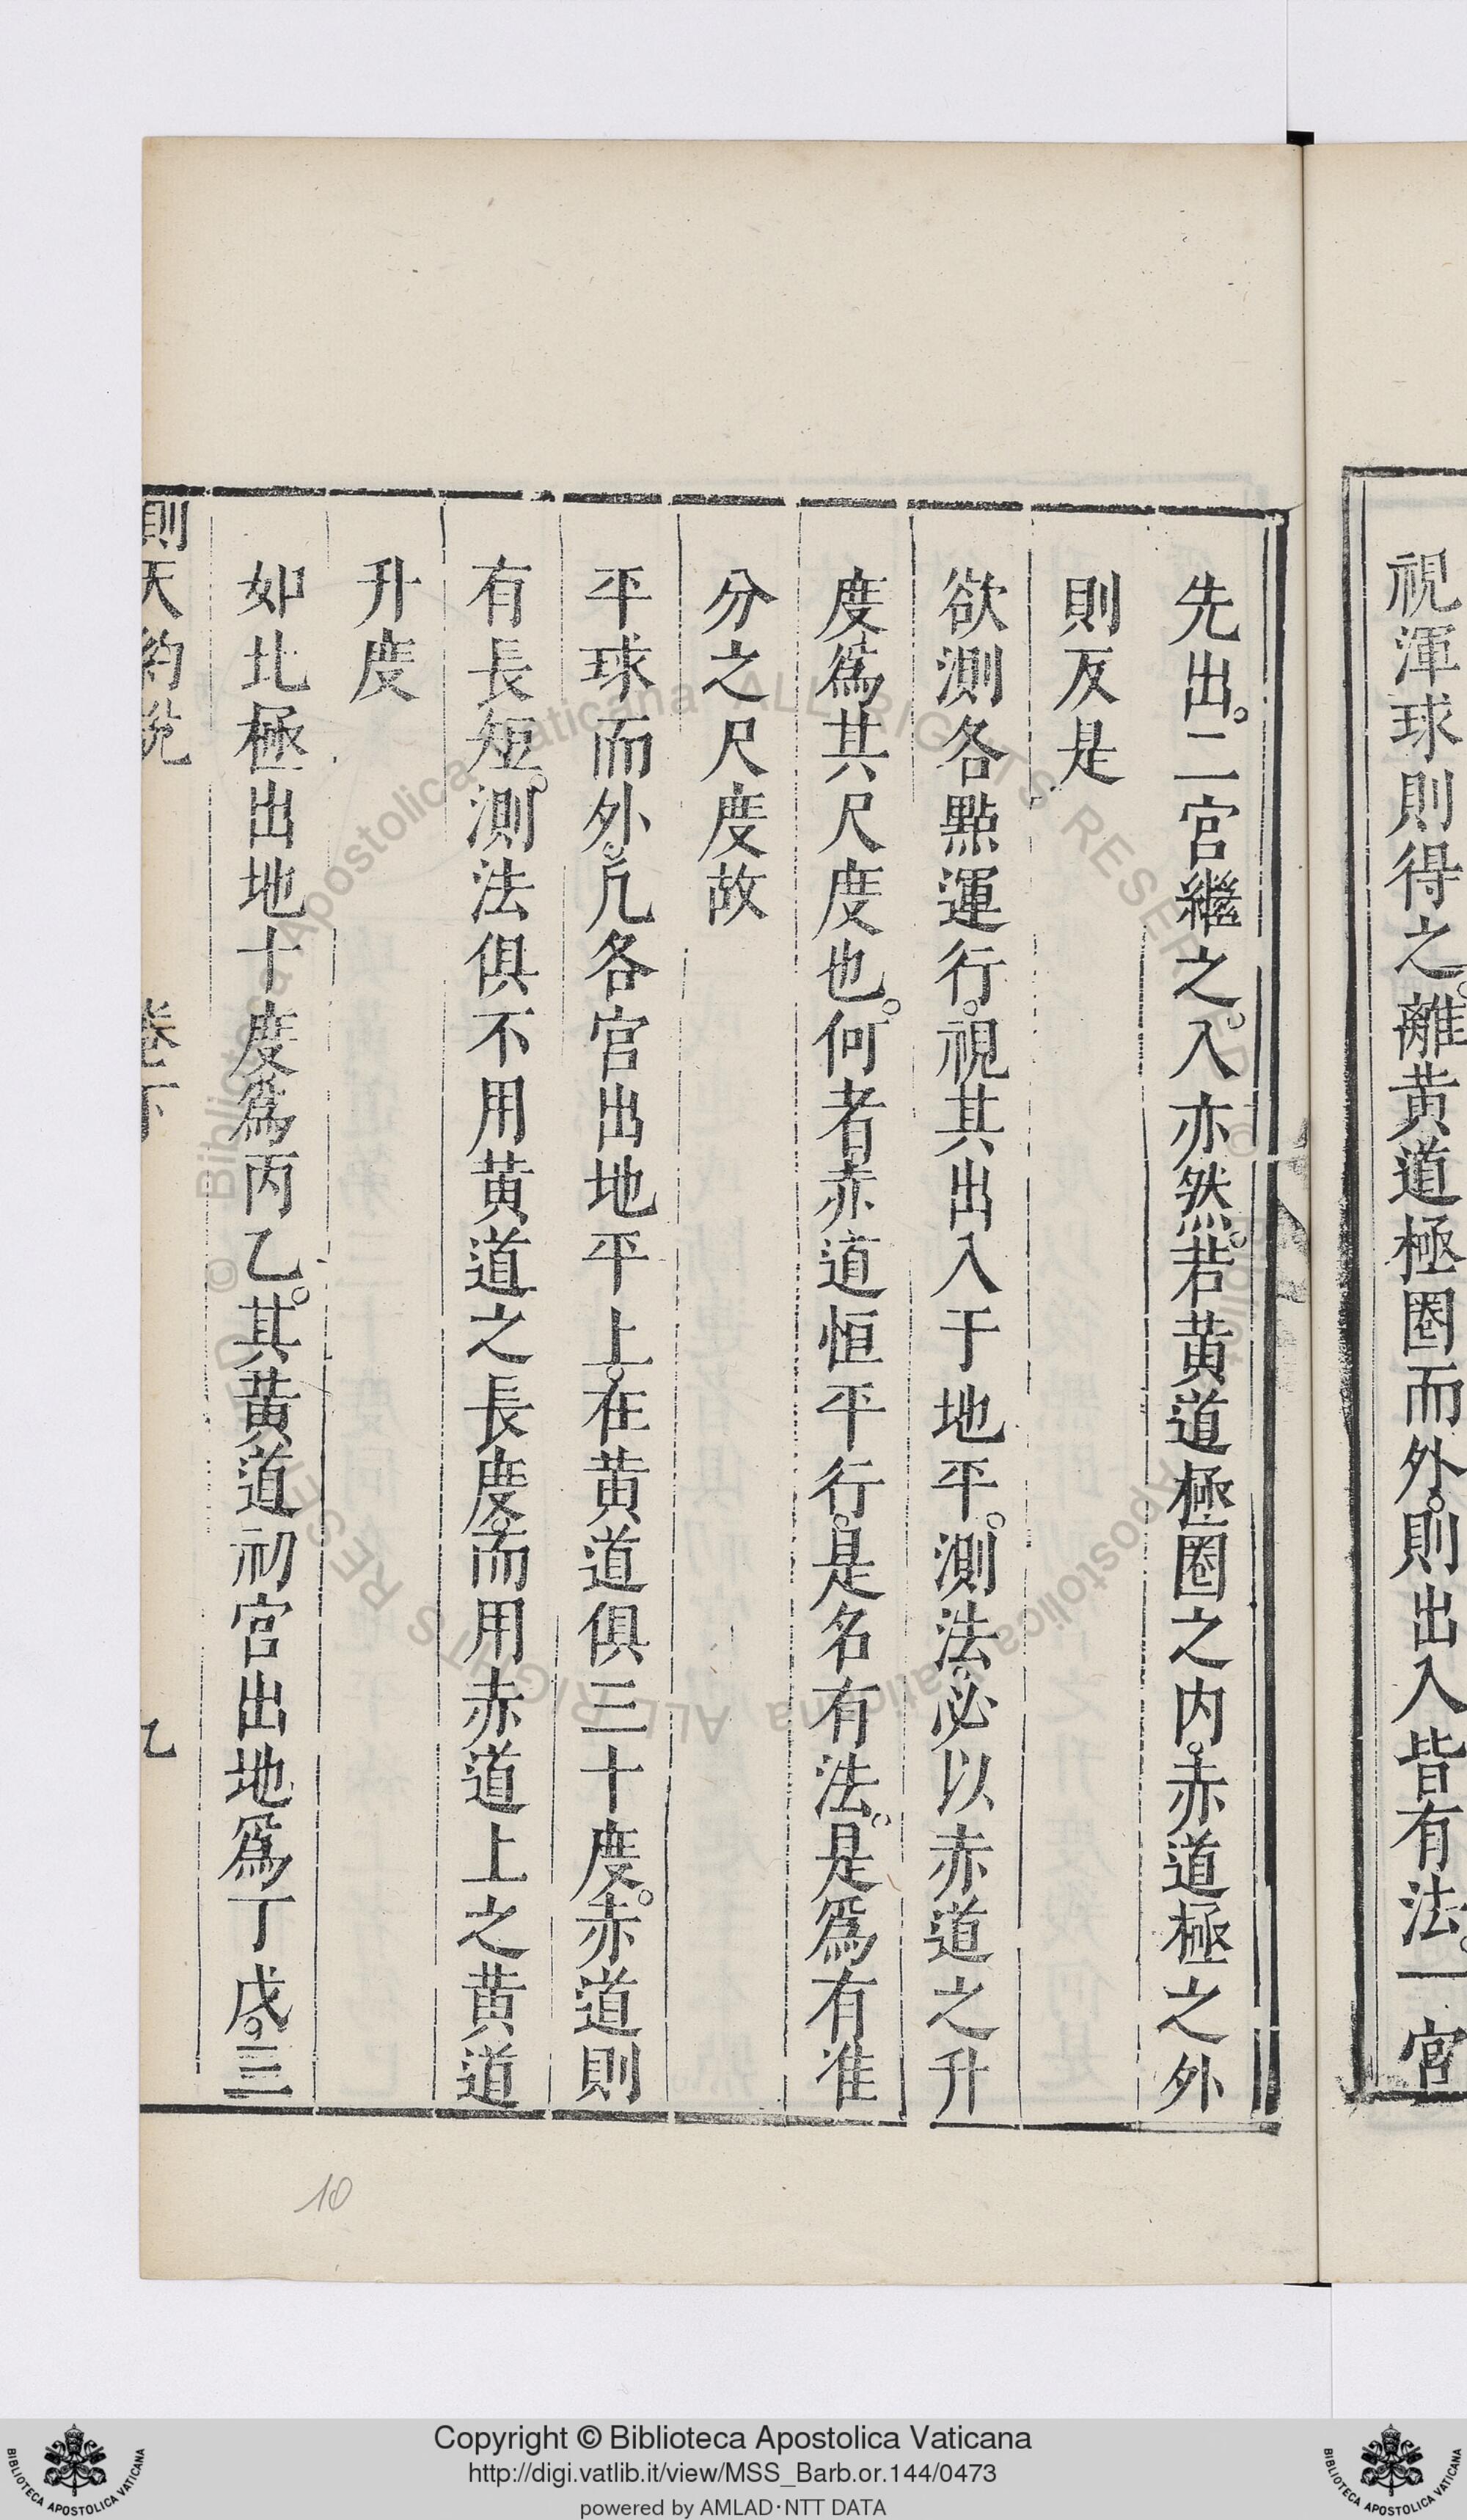 視渾球則得之。離黄道極圈而外。則出入皆有法。一宮
先出。二宮繼之。入亦然。若黄道極圈之内。赤道極之外
則反是
欲測各㸃運行。視其出入于地平。測法。必以赤道之升
度爲其尺度也。何者赤道恒平行。是名有法。是爲有准
分之尺度故
平球而外。凢各宮出地平上。在黄道俱三十度。赤道則
有長短。測法俱不用黄道之長度。而用赤道上之黄道
升度
如北極出地十度爲丙乙。其黄道初宮出地爲丁戊。三
則天約説
卷下
10
© Biblioteca Apostolica Vaticana ALL RIGHTS RESERVED
Copyright © Biblioteca Apostolica Vaticana
http://digi.vatlib.it/view/MSS_Barb.or.144/0473
powered by AMLAD·NTT DATA
BIBLIOTECA APOSTOLICA VATICANA
BIBLIOTECA APOSTOLICA VATICANA